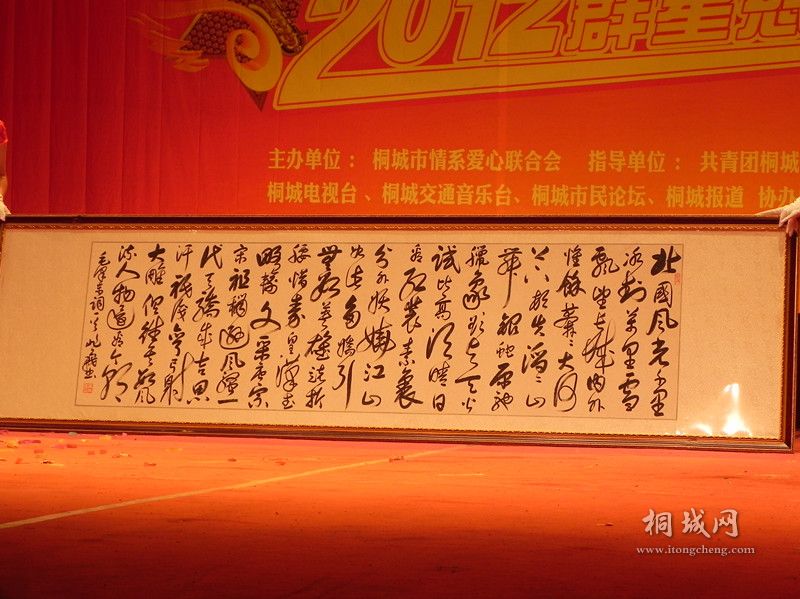 2012群星
主办单位： 桐城市情系爱心联合会 指导单位： 共青团桐城
桐城电视台 、桐城交通音乐台、桐城市民论坛、桐城报道 协办
北國风光千里
冰封万里雪
飘望长城内外
惟余莽〻大河
上下顿失滔〻山
舞银蛇原驰
腊象欲与天公
试比高须晴日
看红装素裹
分外妖娆江山
如此多娇引
无数英雄竞折
腰惜秦皇汉武
略输文采唐宗
宋祖稍逊风骚一
代天骄成吉思
汗祗识弯弓射
大雕俱往矣数风
流人物还看今朝
毛泽东词
桐城网
www.itongcheng.com